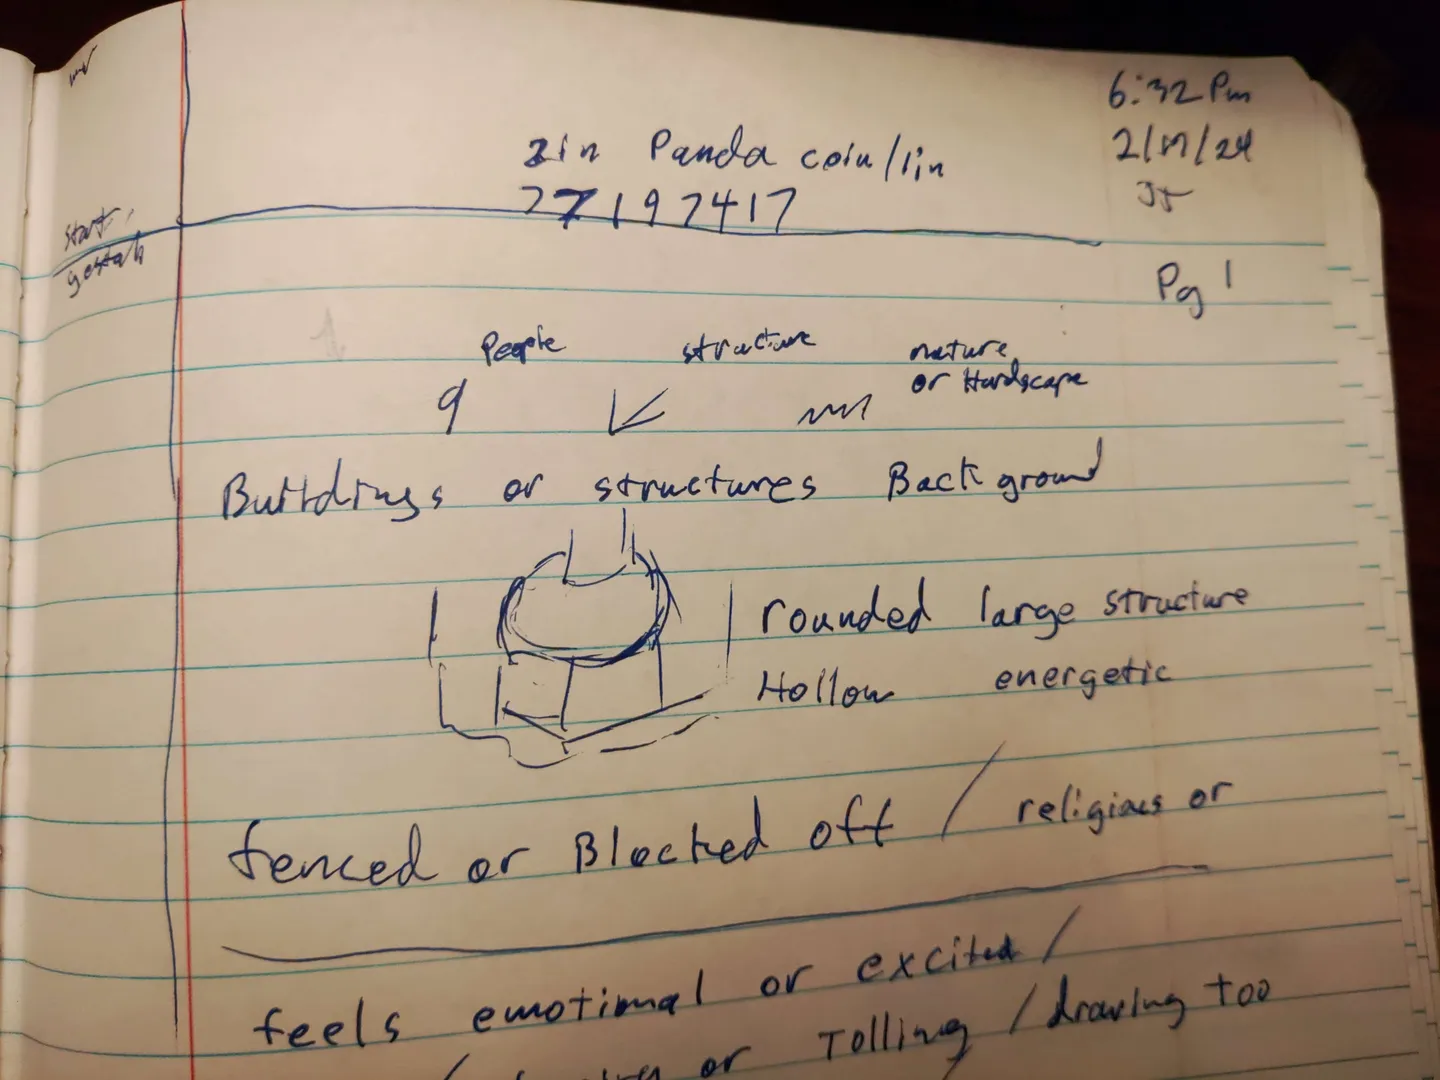 6:32 Pm
2/17/24
2in Panda coin/1in
77197417
start
gestalt
Pg 1
People structure nature
or Hardscape
Buildings or structures Background
rounded large structure
Hollow energetic
fenced or Blocked off / religious or
feels emotional or excited /
or Tolling / drawing too